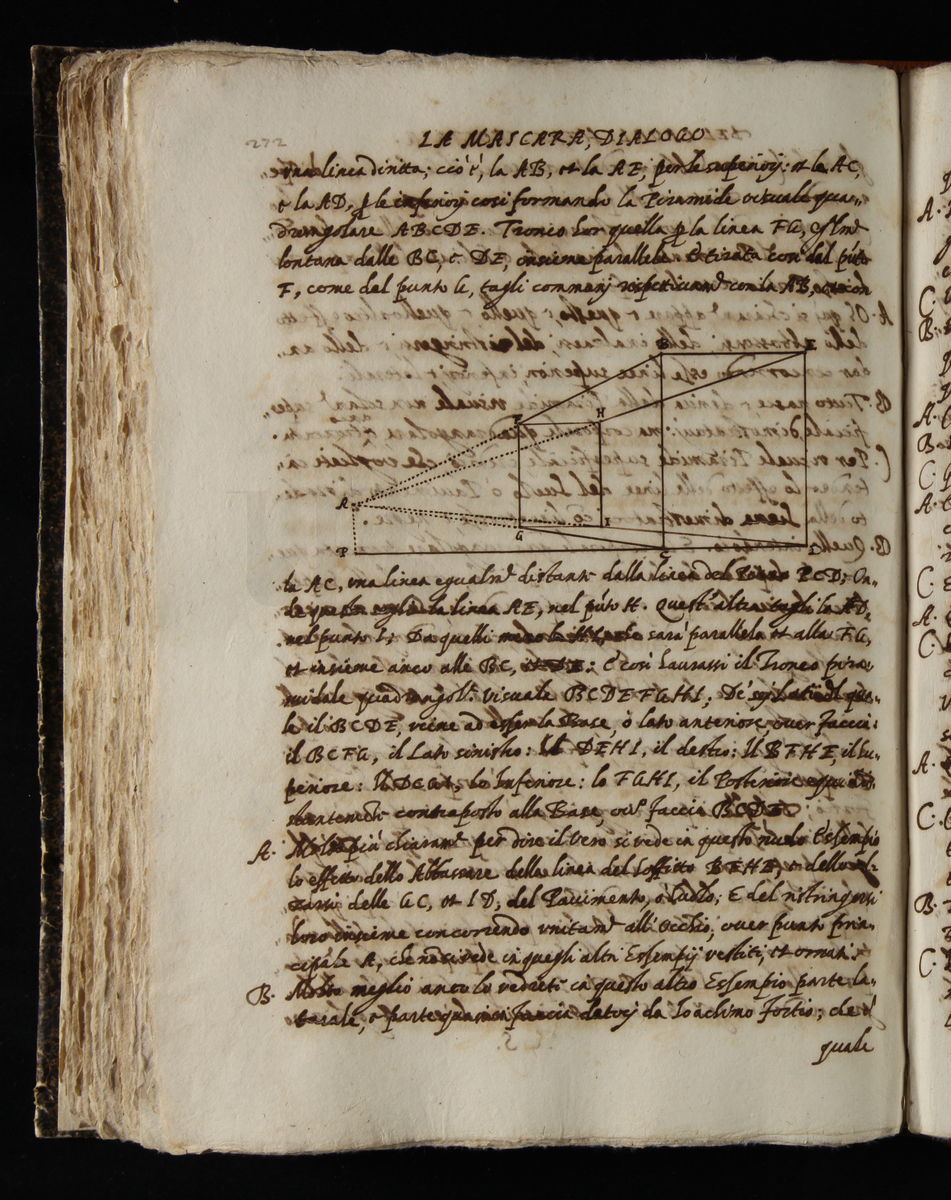 272
LA MASCARA, DIALOGO
una linea diritta; cio è, la AB, et la AE, per le superiorj: et la AC,
e la AD, p le inferiorj cosi formando la Piramide visuale qua,,
drangolare ABCDE. Tronco hor quella p la linea FG,
lontana dalle BC, e DE, insieme parallele. E tirata così dal pũto
F, come del punto G, tagli commarj respettiuam.e con la AB, et con
B
E
F
H
A
G
I
P
C
D
la AC, una linea egualm.e distante dalla linea del Piano BCD; On,,
de la linea AE, nel pũto H. Quest' altra tagli la AD,
nel punto I; Da quelli sarà parallela et alla FG,
et insieme anco alle BC, et DE: E così haurassi il Tronco pira,,
midale quadrangol.e visuale BCDEFGHI; De' sej Lati del qua,,
le il BCDE, viene ad esser la Base, ò lato anteriore, ouer faccia:
il BCFG, il Lato sinistro: Il DEHI, il destro: Il BFHE, il su,,
periore: Il DCGI, lo Inferiore: lo FGHI, il Posteriore equidi,,
stantemente contraposto alla Base, faccia BCDE.
A. Molto più chiaram.e per dire il Vero si vede in questo nudo Essempio
lo effetto dello Abbassare della linea del Soffitto BFHE, e dello al,,
zarsi delle GC, et ID, del Pauimento, ò suolo; E del ristringersi
loro insieme concorrendo unitam.e all' Occhio, ouer punto prin,,
cipale A, che non si vede in quegli altri Essempij vestiti, et ornati.
B. Molto meglio anco lo vedrete in questo altro Essempio parte la,,
terale, e parte quasi in faccia datocj da Ioachimo Fortio; che è
quale